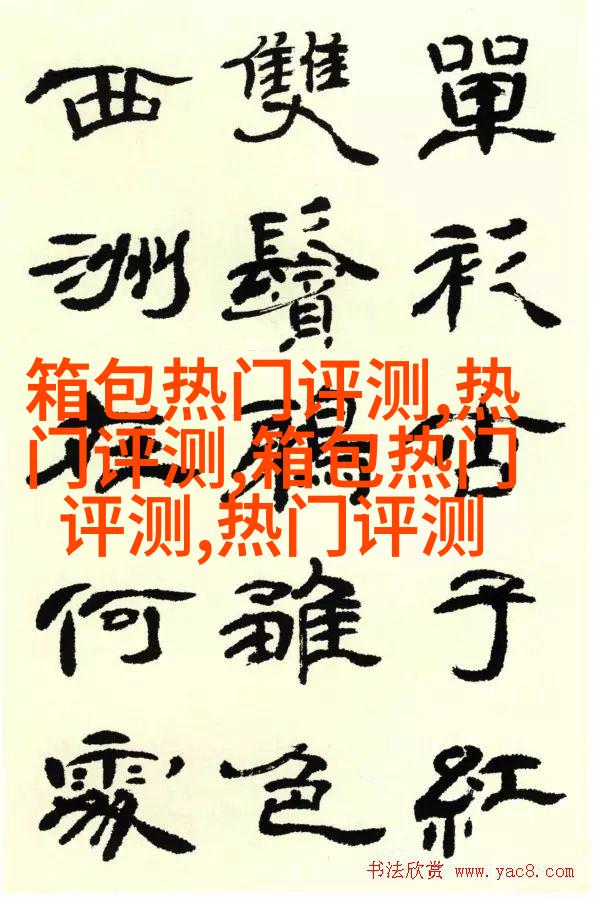 單衫杏子紅
雙鬢鴉雛色
西洲在何處
箱包热门评测,热
门评测,箱包热门
评测,热门评测
书法欣赏 www.yac8.com